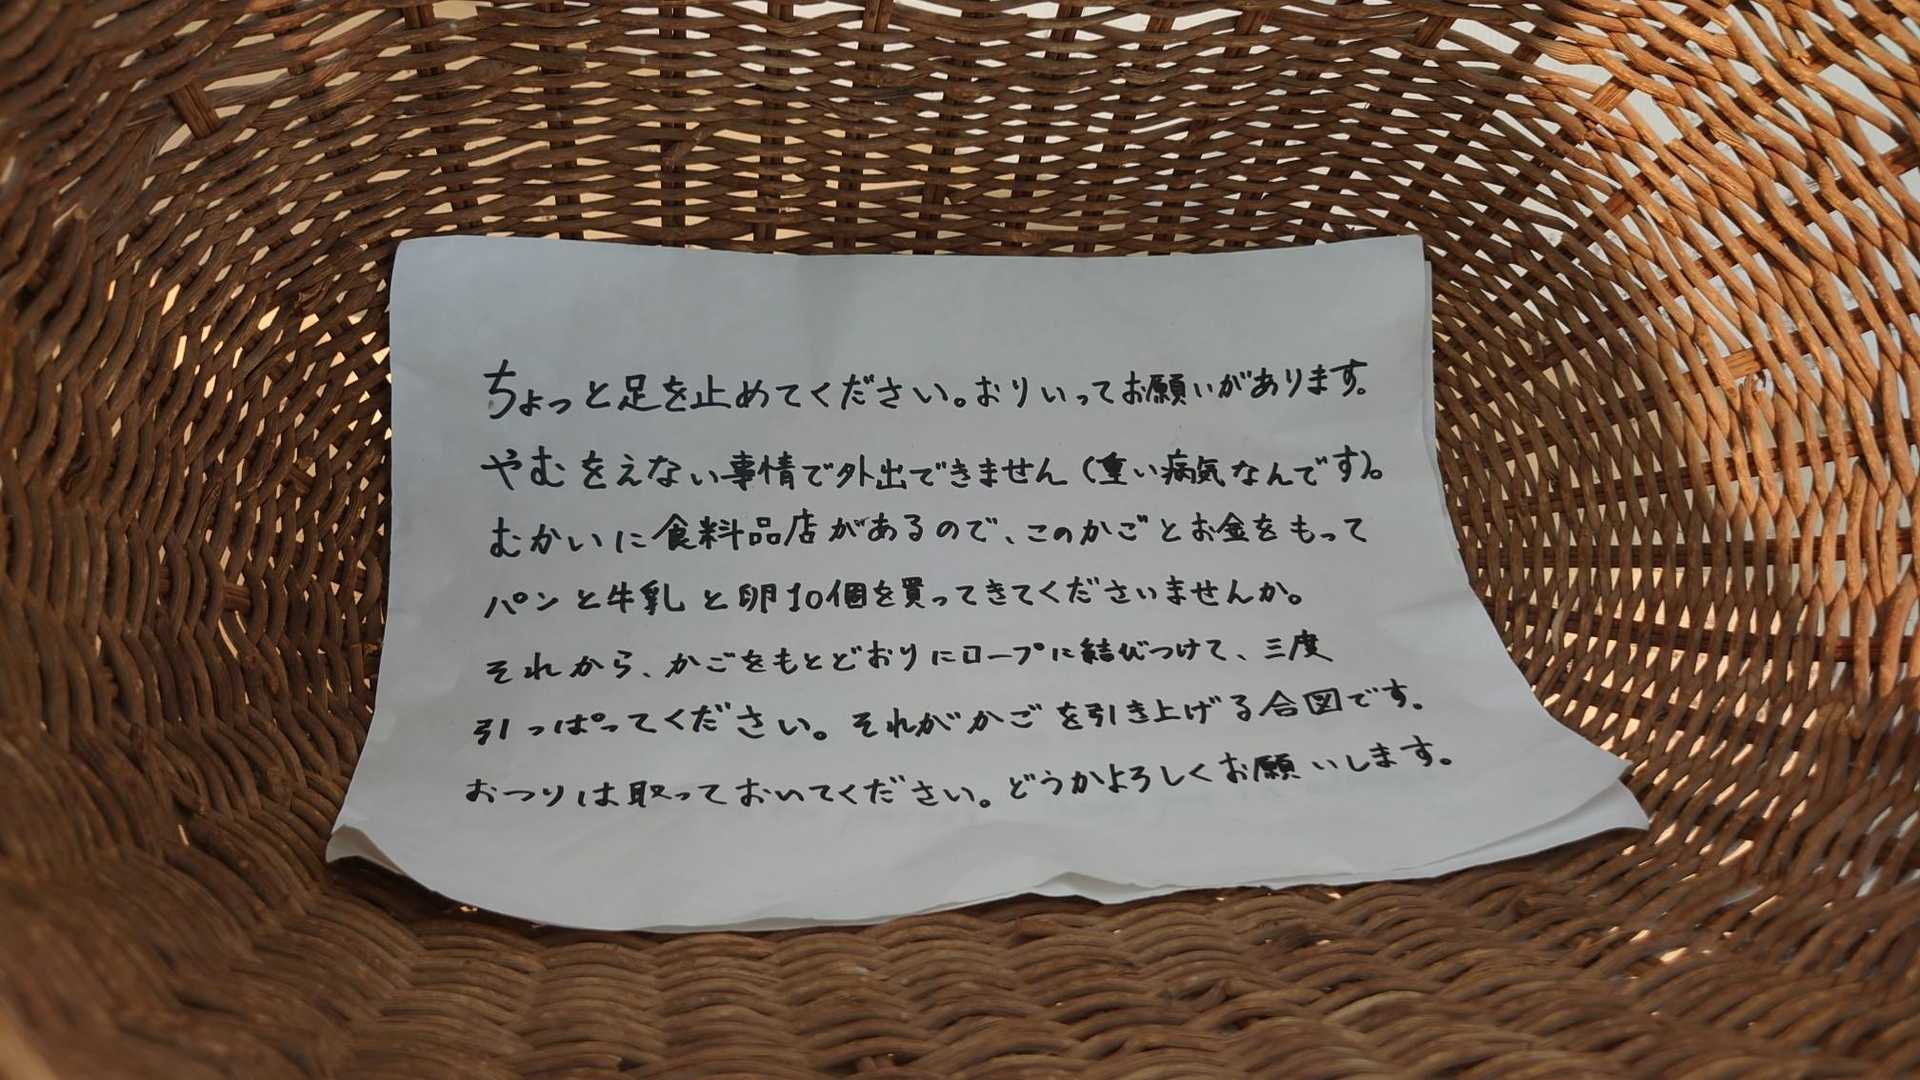 ちょっと足を止めてください。おりいってお願いがあります。
やむをえない事情で外出できません(重い病気なんです)。
むかいに食料品店があるので、このかごとお金をもって
パンと牛乳と卵10個を買ってきてくださいませんか。
それから、かごをもとどおりにロープに結びつけて、三度
引っぱってください。それがかごを引き上げる合図です。
おつりは取っておいてください。どうかよろしくお願いします。